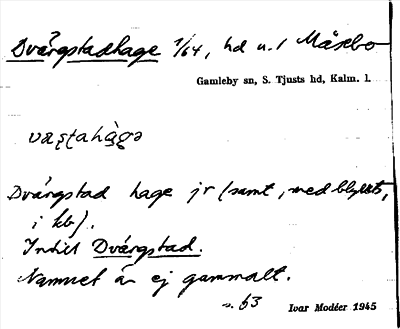 Dvärgstadhage 1/64, hd u. l Måsebo
Gamleby sn, S. Tjusts hd, Kalm. l.
væʂʈahàgə
Dvärgstad hage jr (samt, med blyerts,
i kb).
Intill Dvärgstad.
Namnet är ej gammalt.
s. 63
Ivar Modéer 1945